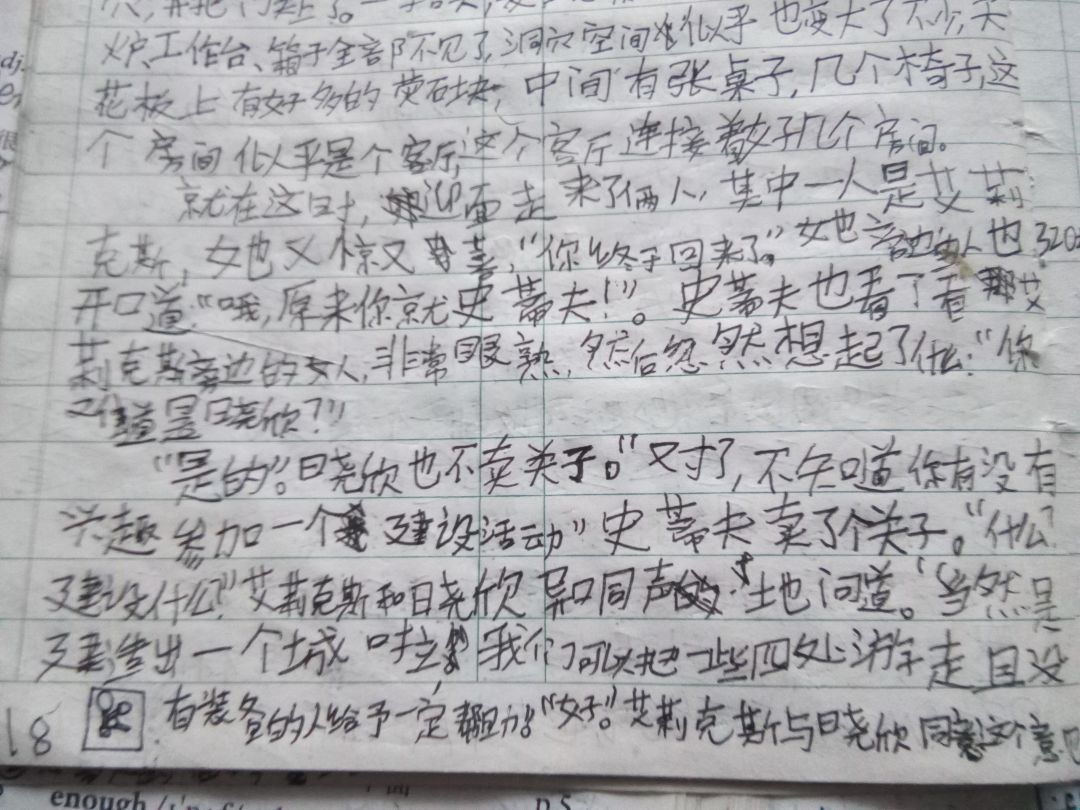 穴,并把门关上了。一
炉、工作台、箱子全部不见了,洞穴空间似乎也变大了不少,天
花板上有好多的荧石块,中间有张桌子,几个椅子,这
个房间似乎是个客厅,这个客厅连接着好几个房间。
就在这时,迎面走来了俩人,其中一人是艾莉
克斯,她又惊又喜,“你终于回来了。”她旁边的人也
开口道:“哦,原来你就史蒂夫!”。史蒂夫也看了看艾
莉克斯旁边的女人,非常眼熟,然后忽然想起了什么:“你
道是日晓欣?”
“是的”。日晓欣也不卖关子。“对了,不知道你有没有
兴趣参加一个建设活动”史蒂夫卖了个关子。“什么?
建设什么?”艾莉克斯和日晓欣异口同声地问道。“当然是
建造出一个城啦!我们可以把一些四处游走且没
18 有装备的人给予一定帮助!”“好。”艾莉克斯与日晓欣同意这个意
dj.
enough
p.5